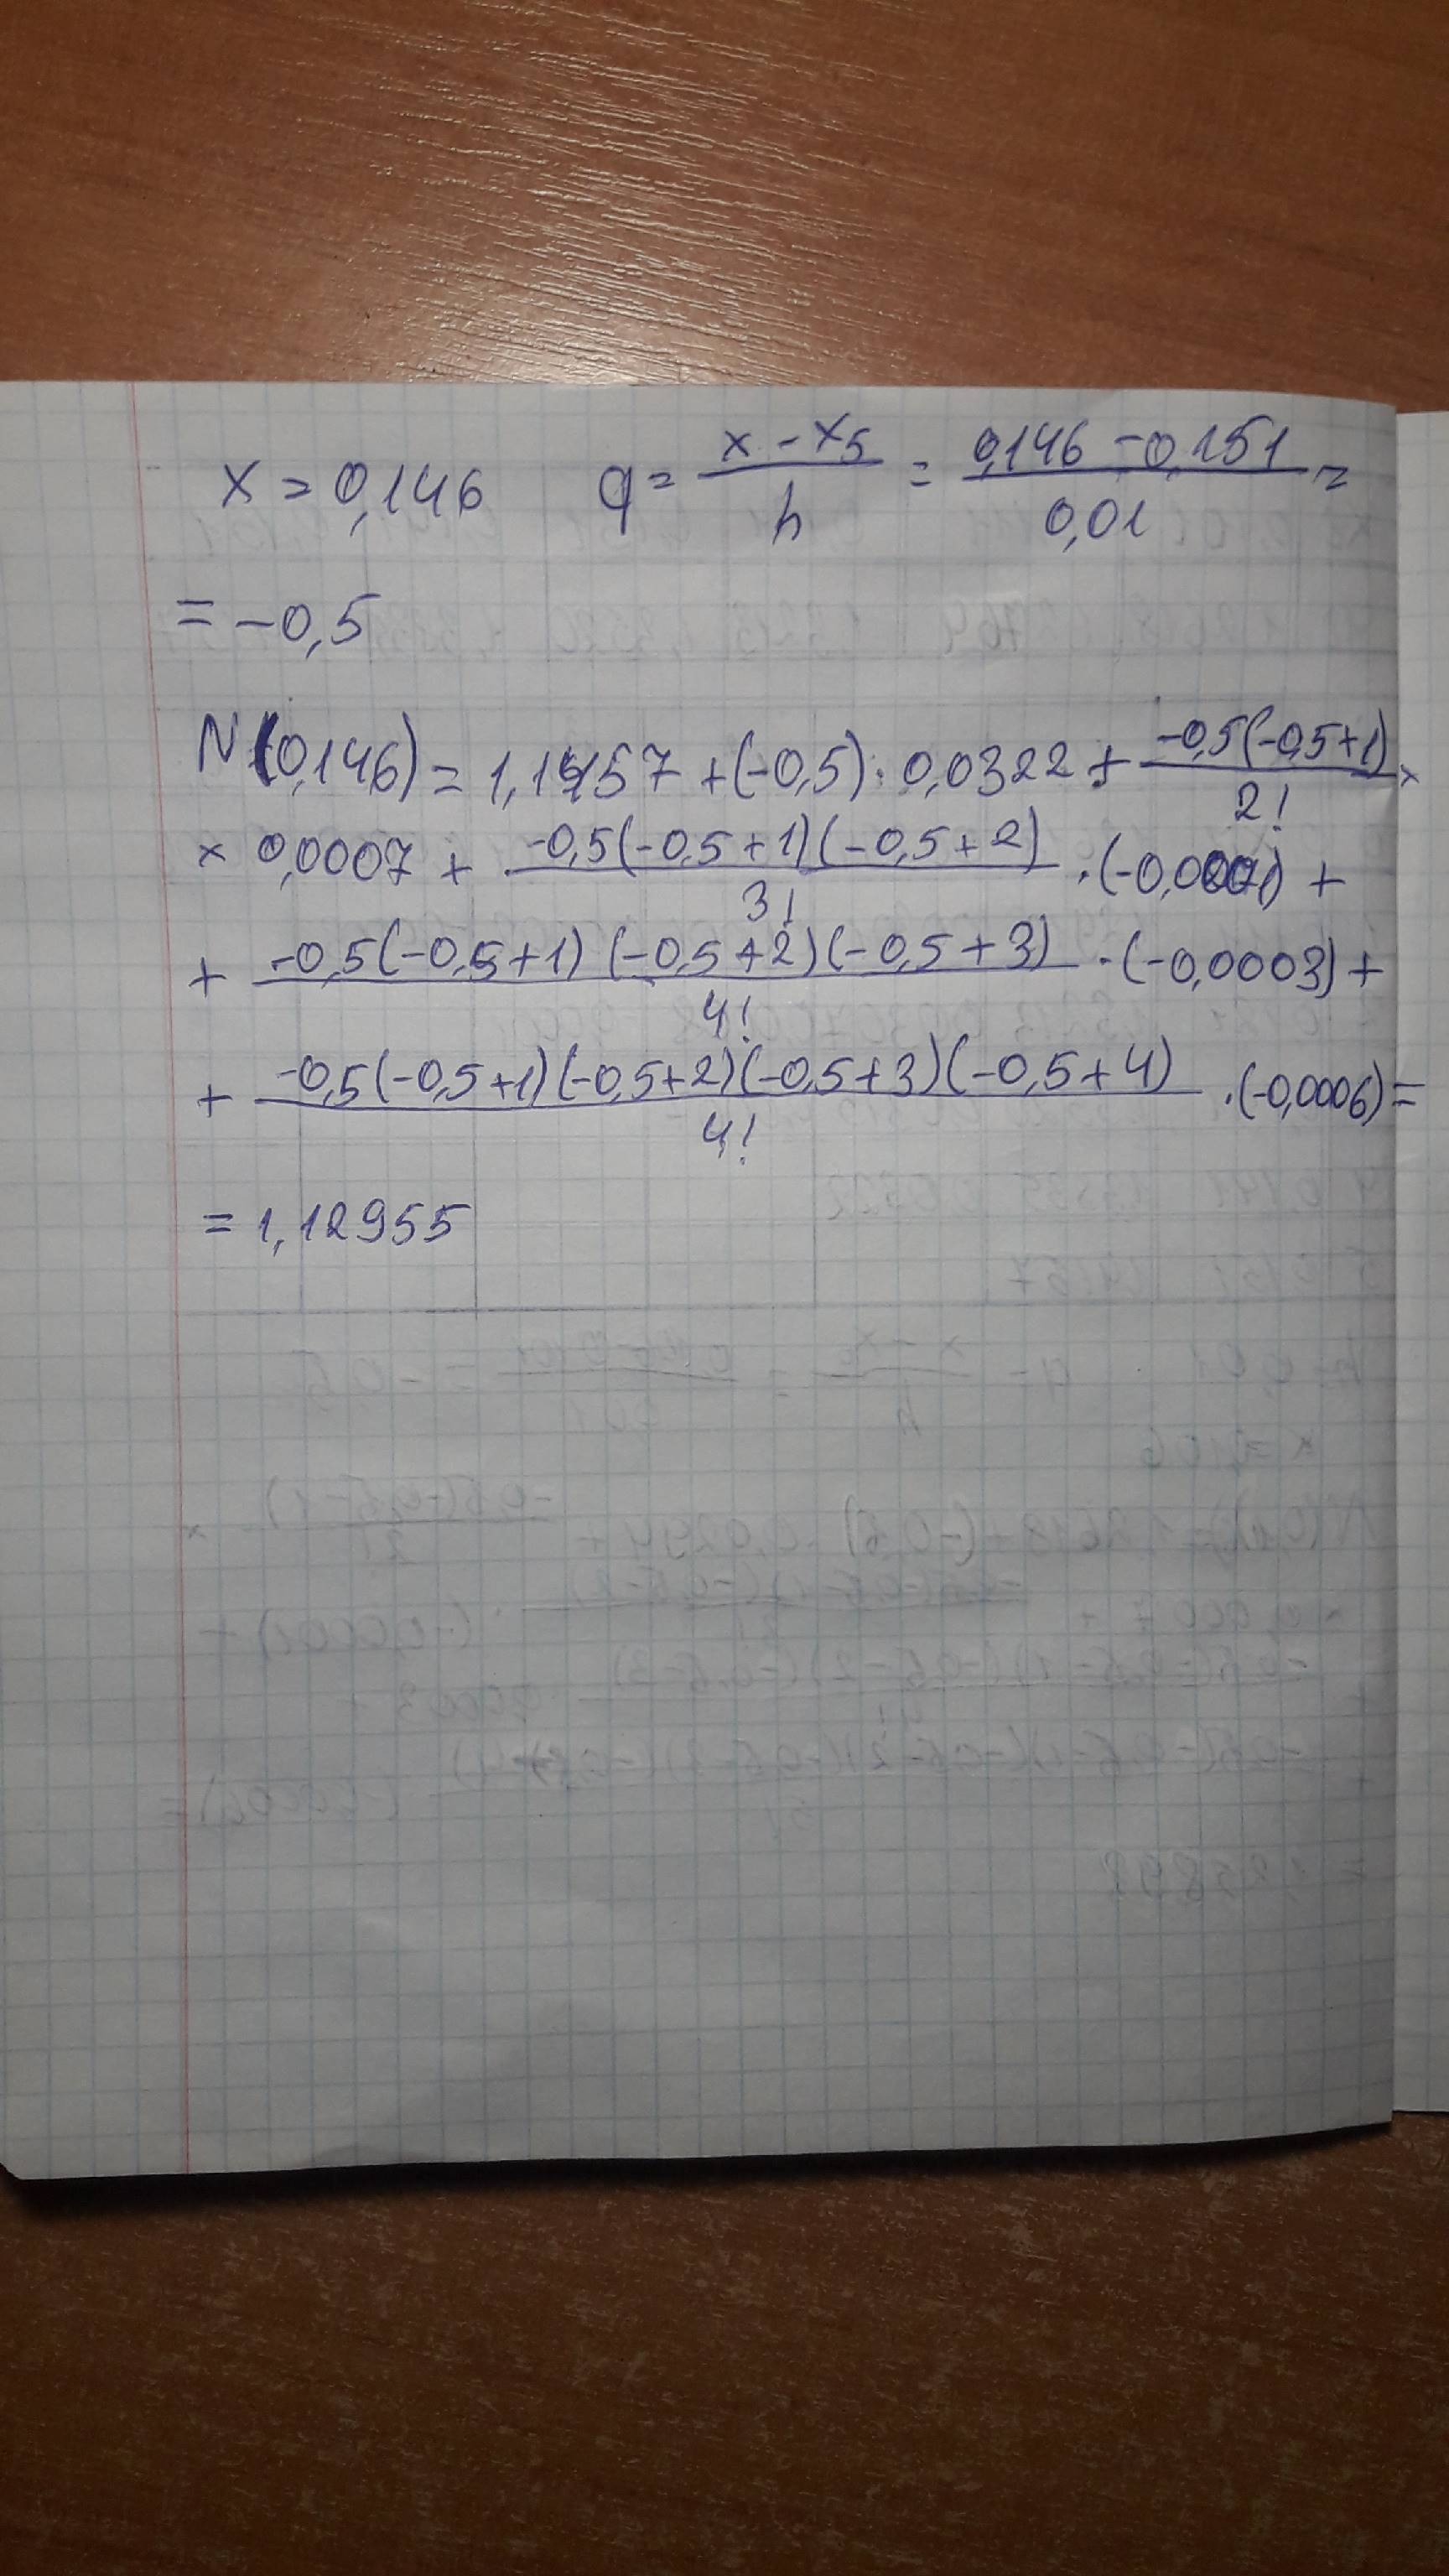 x = 0,146 q = (x - x5)/h = (0,146 - 0,151)/0,01 =
= -0,5
N(0,146) = 1,1457 + (-0,5) · 0,0322 + (-0,5(-0,5+1))/2! ×
× 0,0007 + (-0,5(-0,5+1)(-0,5+2))/3! · (-0,0001) +
+ (-0,5(-0,5+1)(-0,5+2)(-0,5+3))/4! · (-0,0003) +
+ (-0,5(-0,5+1)(-0,5+2)(-0,5+3)(-0,5+4))/4! · (-0,0006) =
= 1,12955